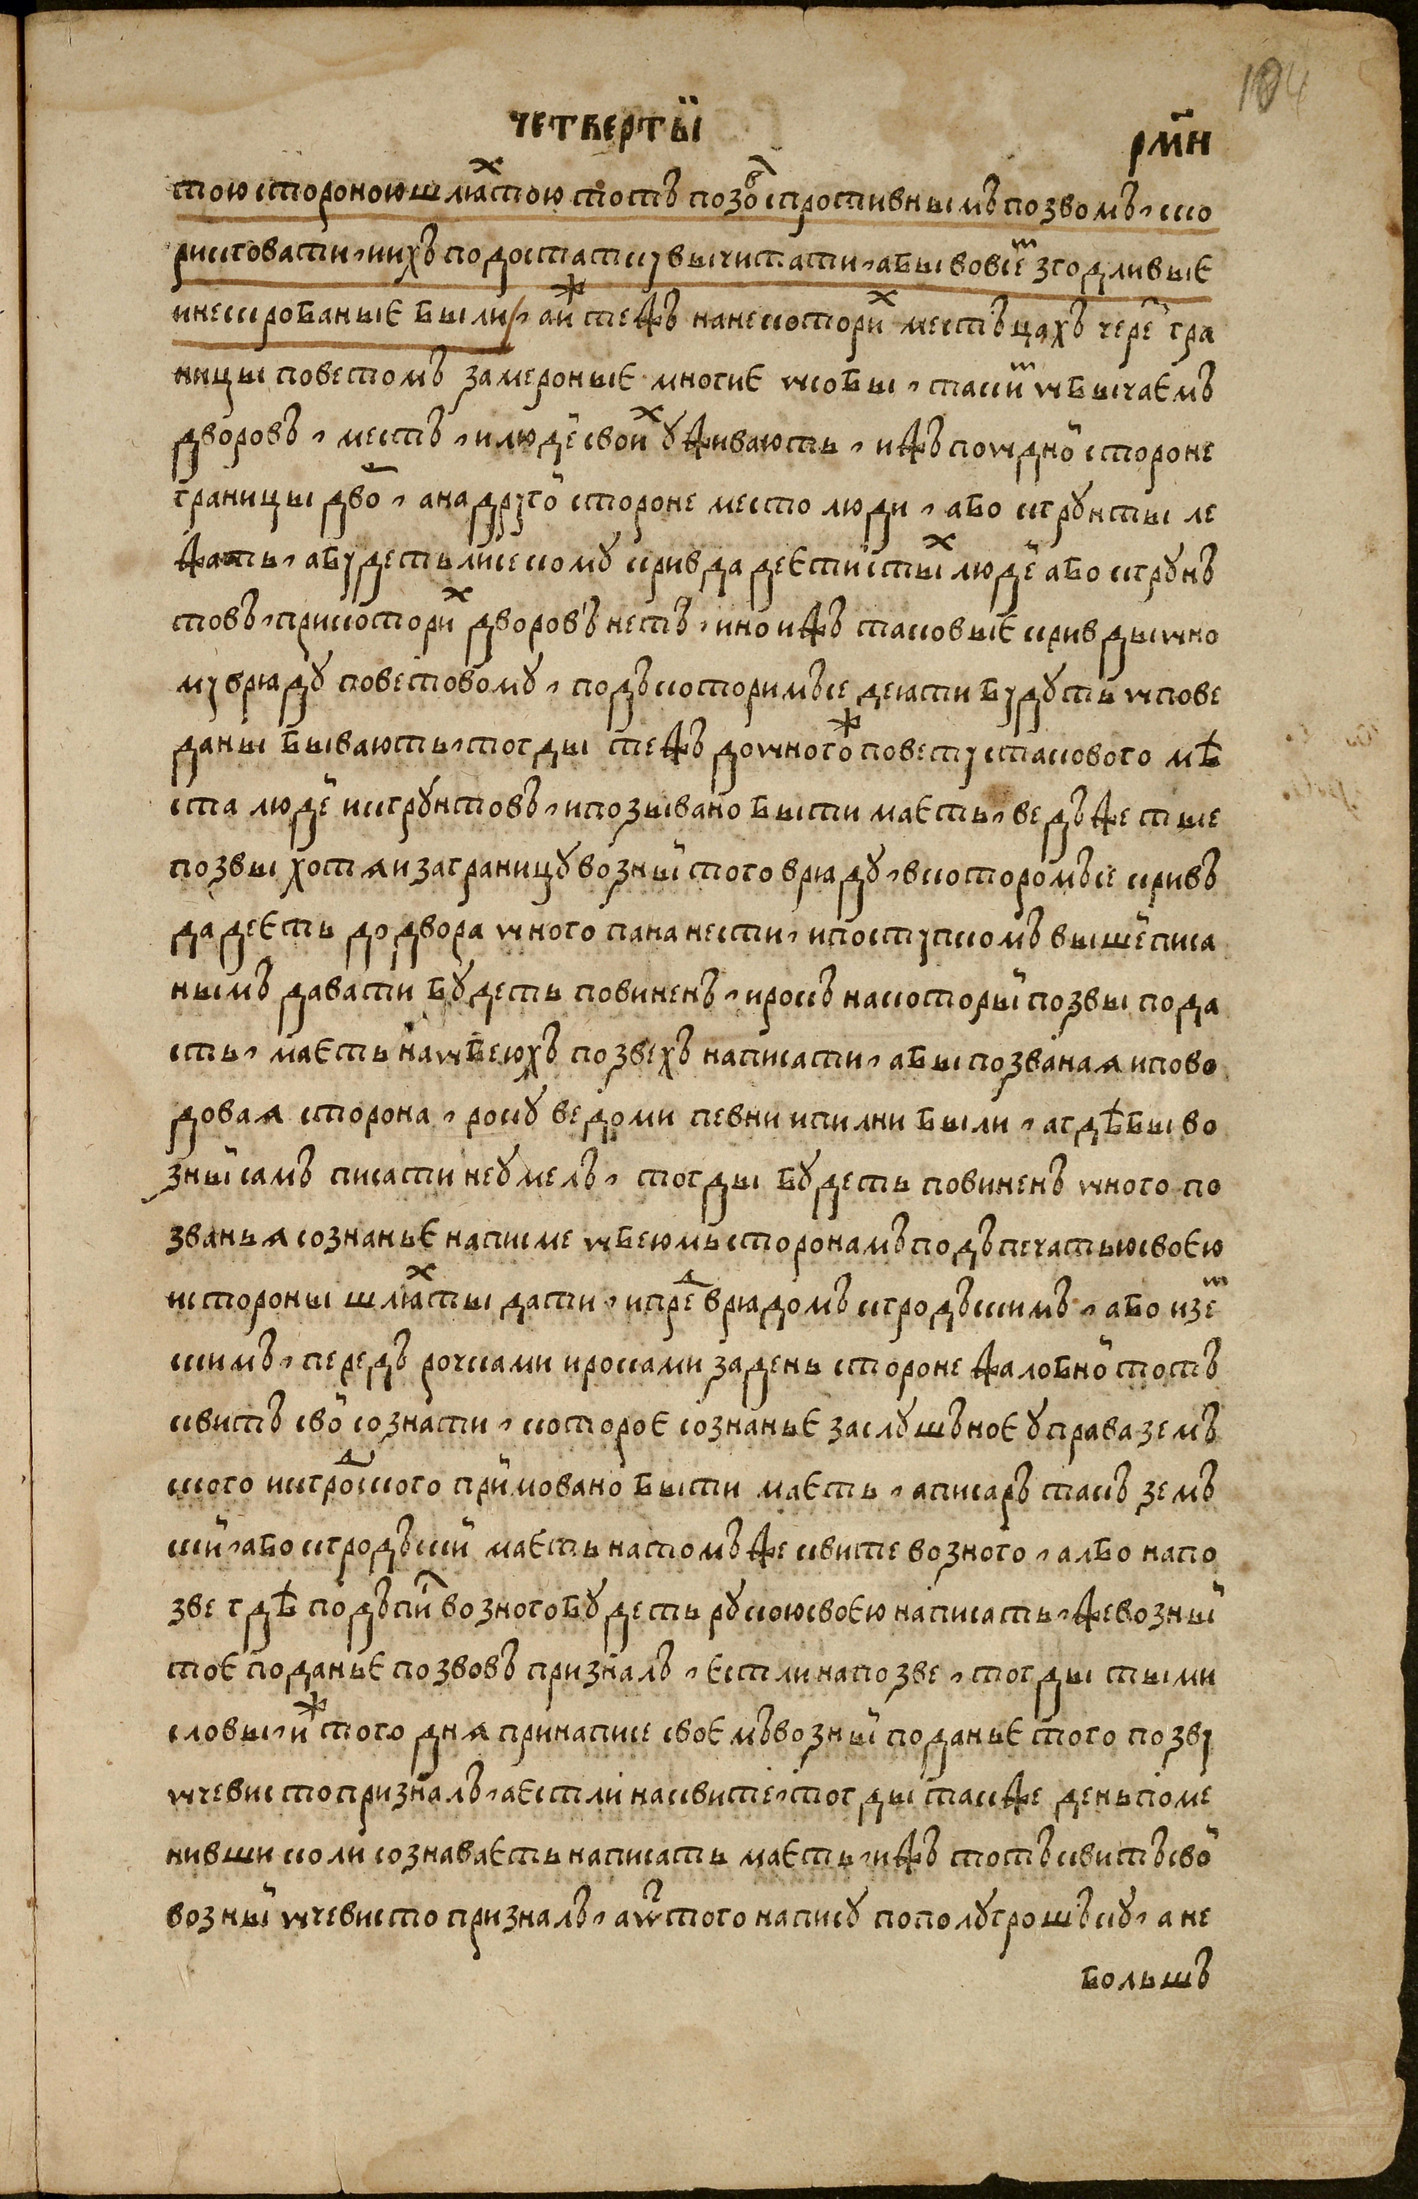 104
четвертый
рм҃н
тою стороною шляхтою тотъ позовъ спротивнымъ позвомъ, ско
рикговати, и ихъ подостатку вычитати, абы вовсем згодливые
и нескробаные были, а иж тежъ на некоторих местъцахъ через гра
ницы поветомъ замероные многие ѡсобы, таким ѡбычаемъ
дворовъ, местъ, и людей своих ужывають, ижъ по ѡдной стороне
границы двор, а на другой стороне место люди, або кгрунты ле
жать, а будетьли се кому кривда деяти с тых людей або кгрунъ
товъ, при которих дворовъ нетъ, ино ижъ таковые кривды ѡно
му вряду поветовому, подъ которимъ се деяти будуть ѡпове
даны бывають, тогды тежъ до ѡногож повету с такового мѣ
ста людей и кгрунтовъ, и позывано быти маеть, ведъже тые
позвы хотя и за границу возный того вряду, в которомъ се крив
да деетъ до двора ѡного пана нести, и поступкомъ вышей писа
нымъ давати будеть повиненъ, и рокъ на который позвы пода
сть, маеть на ѡбеюхъ позвехъ написати, абы позваная и пово
довая сторона, року ведоми певни и пилни были, а гдѣбы во
зный самъ писати не умелъ, тогды будеть повиненъ ѡного по
званья сознанье на писме ѡбеюмъ сторонамъ подъ печатью своею
и стороны шляхты дати, и пред врядомъ кгродъскимъ, або и зем
скимъ, передъ рочками и роками за день стороне жалобной тотъ
квитъ свой сознати, которое сознанье за слушъное у права земъ
ского и кгродского приймовано быти маеть, а писаръ такъ земъ
ский, або кгродъский маеть на томъже квите возного, албо на по
зве гдѣ подъпис возного будеть рукою своею написать, же возный
тое поданье позвовъ призналъ, естли на позве, тогды тыми
словы, иж того дня при написе своемъ возный поданье того позву
ѡчевисто призналъ, а естли на квите, тогды так же день поме
нивши коли сознаваеть написать маеть, ижъ тотъ квитъ свой
возный ѡчевисто призналъ, а ѡт того напису по полугрошъку, а не
большъ